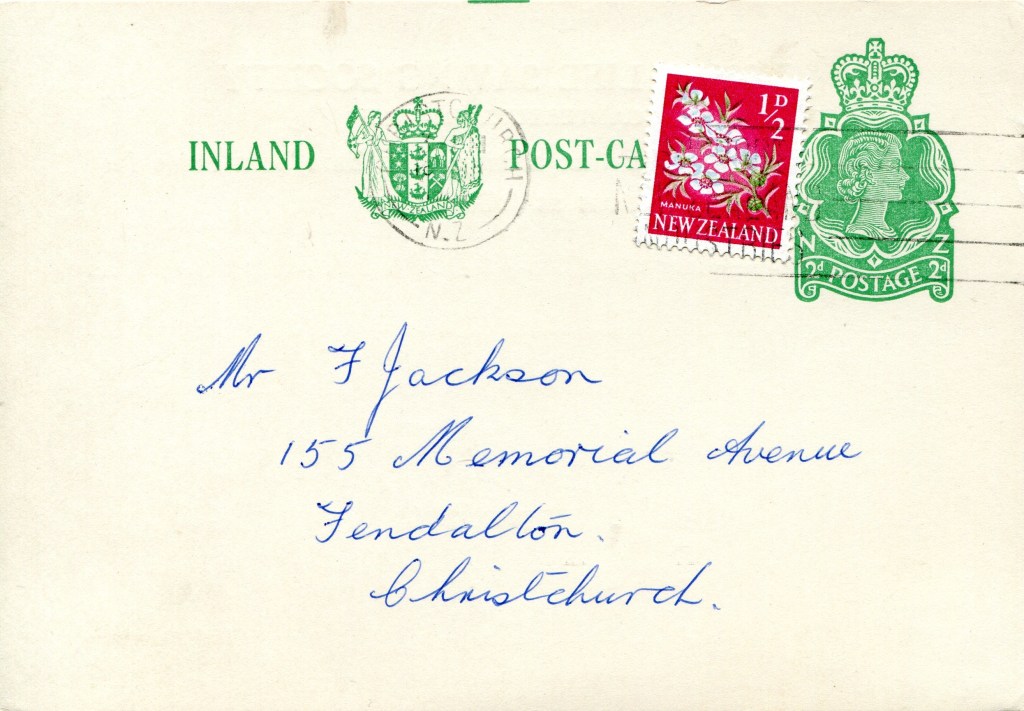 INLAND POST-CA
NEW ZEALAND
N.Z
1/2 D
MANUKA
NEW ZEALAND
N Z
2d POSTAGE 2d
Mr F Jackson
155 Memorial Avenue
Fendalton.
Christchurch.